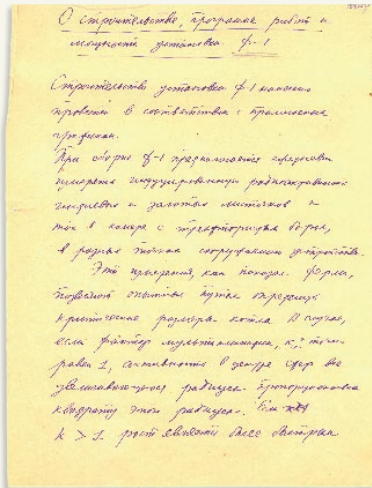 О строительстве, программа работ и
мощности установки Ф-1
Строительство установки Ф-1 начато
провести в соответствии с
графиком.
При сборке Ф-1 предполагается
измерять индуцированную радиоактивность
индиевых и золотых листочков и
ток в камере с трехфтористым бором,
в разных точках сооружаемого устройства.
Эти измерения, как показал Ферми,
позволят опытным путем определить
критические размеры котла. В случае,
если фактор мультипликации, k,
равен 1, активность в центре сфер все
увеличивающегося радиуса пропорциональна
квадрату этого радиуса. Если
k > 1 рост является более быстрым